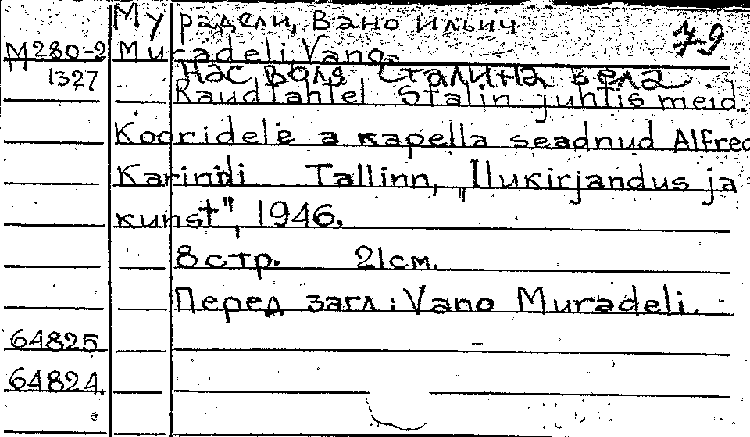 Мурадели, Вано Ильич 79
М280-2 Muradeli, Vano.
1327 Нас воля Сталина вела
Raudtahtel Stalin juhtis meid.
Kooridele a kapella seadnud Alfred
Karindi Tallinn, "Ilukirjandus ja
kunst", 1946.
8 стр. 21 см.
Перед загл: Vano Muradeli.
64825
64824